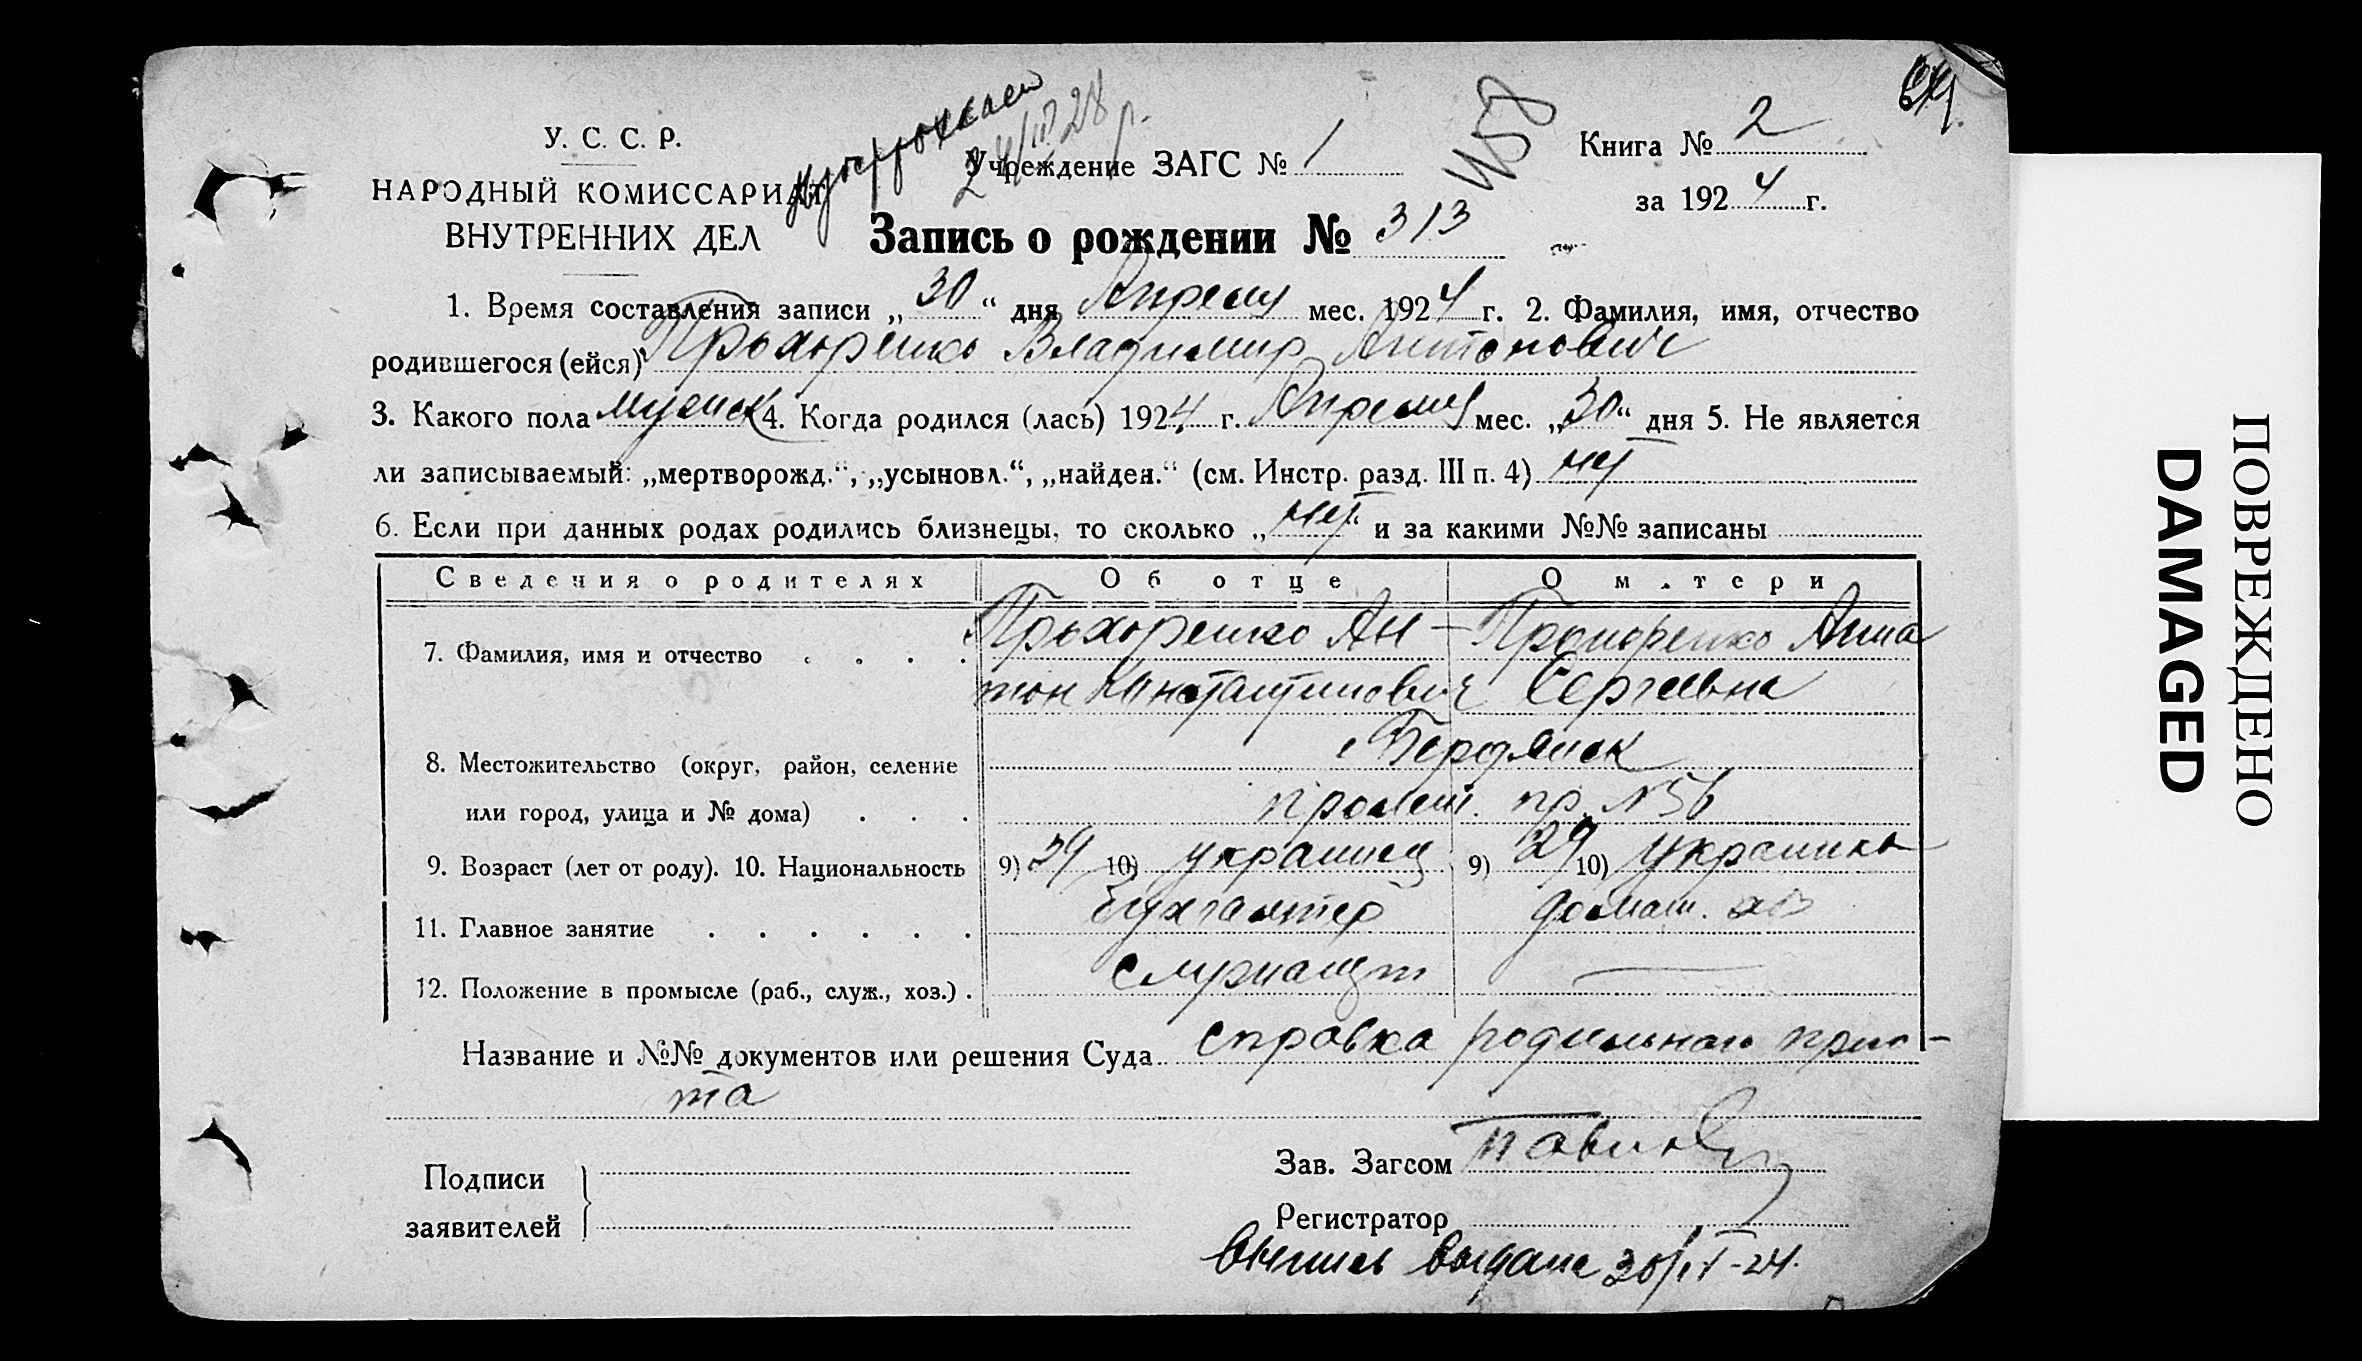 64.
У. С. С. Р.
НАРОДНЫЙ КОМИССАРИАТ
ВНУТРЕННИХ ДЕЛ
28 р.
Учреждение ЗАГС № 1
Книга № 2
за 1924 г.
Запись о рождении № 313
1. Время составления записи „30“ дня Апреля мес. 1924 г. 2. Фамилия, имя, отчество
родившегося (ейся) Прохоренко Владимир Антонович
3. Какого пола мужск 4. Когда родился (лась) 1924 г. Апреля мес. „30“ дня 5. Не является
ли записываемый: „мертворожд.“, „усыновл.“, „найден.“ (см. Инстр. разд. III п. 4) нет
6. Если при данных родах родились близнецы, то сколько „нет“ и за какими №№ записаны
Сведения о родителях Об отце О матери
7. Фамилия, имя и отчество . . . . Прохоренко Ан- Прохоренко Анна
тон Константинович Сергеевна
8. Местожительство (округ, район, селение г Бердянск
или город, улица и № дома) . . . пролет. пр. №56
9. Возраст (лет от роду). 10. Национальность 9) 29 10) украинец 9) 29 10) украинка
11. Главное занятие . . . . . . бухгалтер домаш. хоз
12. Положение в промысле (раб., служ., хоз.) . служащий —
Название и №№ документов или решения Суда справка родильного прию-
та
Подписи
заявителей
Зав. Загсом
Регистратор
Выпись выдана 30/IV-24.
ПОВРЕЖДЕНО
DAMAGED